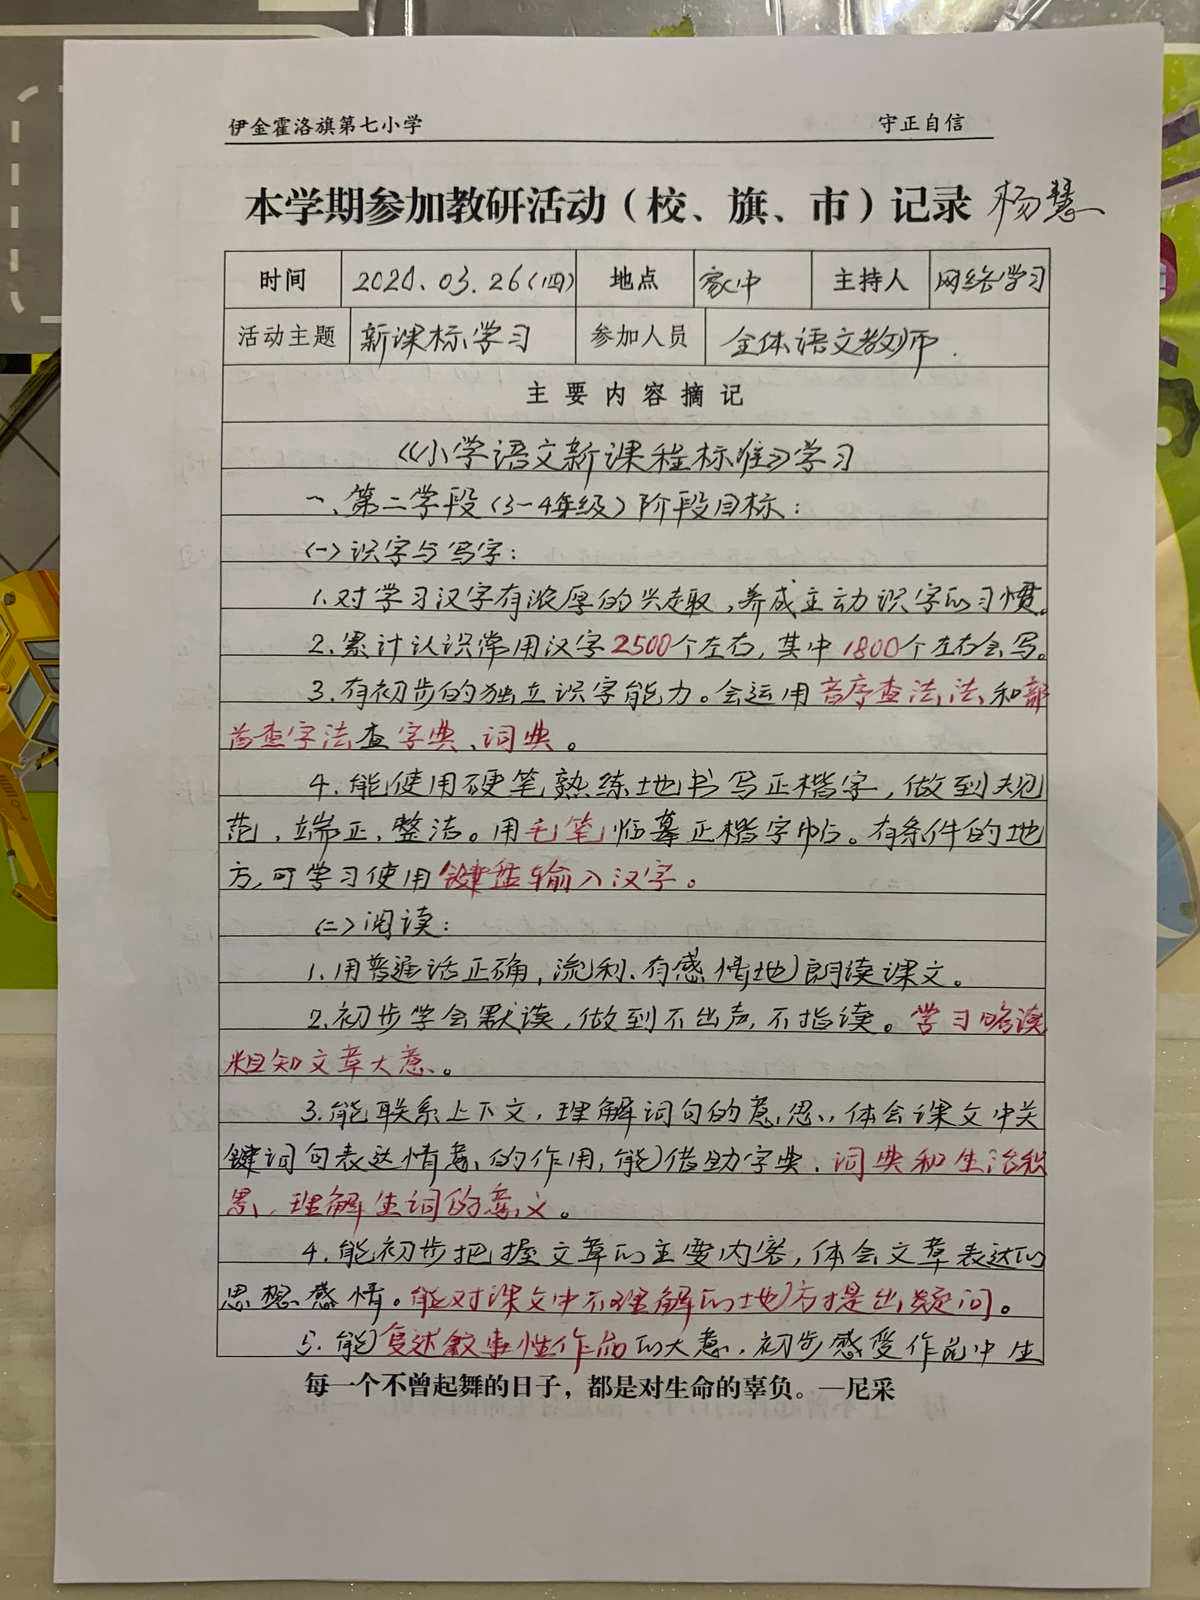 伊金霍洛旗第七小学 守正自信
本学期参加教研活动（校、旗、市）记录 杨慧
时间 2020.03.26(四) 地点 家中 主持人 网络学习
活动主题 新课标学习 参加人员 全体语文教师.
主要内容摘记
《小学语文新课程标准》学习
一、第二学段(3-4年级)阶段目标：
(一)识字与写字：
1.对学习汉字有浓厚的兴趣，养成主动识字的习惯。
2.累计认识常用汉字2500个左右，其中1800个左右会写。
3.有初步的独立识字能力。会运用音序查法法和部
首查字法查字典、词典。
4.能使用硬笔熟练地书写正楷字，做到规
范，端正，整洁。用毛笔临摹正楷字帖。有条件的地
方，可学习使用键盘输入汉字。
(二)阅读：
1.用普通话正确，流利、有感情地朗读课文。
2.初步学会默读，做到不出声，不指读。学习略读
粗知文章大意。
3.能联系上下文，理解词句的意思，体会课文中关
键词句表达情意的作用，能借助字典、词典和生活积
累，理解生词的意义。
4.能初步把握文章的主要内容，体会文章表达的
思想感情。能对课文中不理解的地方提出疑问。
5.能复述叙事性作品的大意，初步感受作品中生
每一个不曾起舞的日子，都是对生命的辜负。—尼采